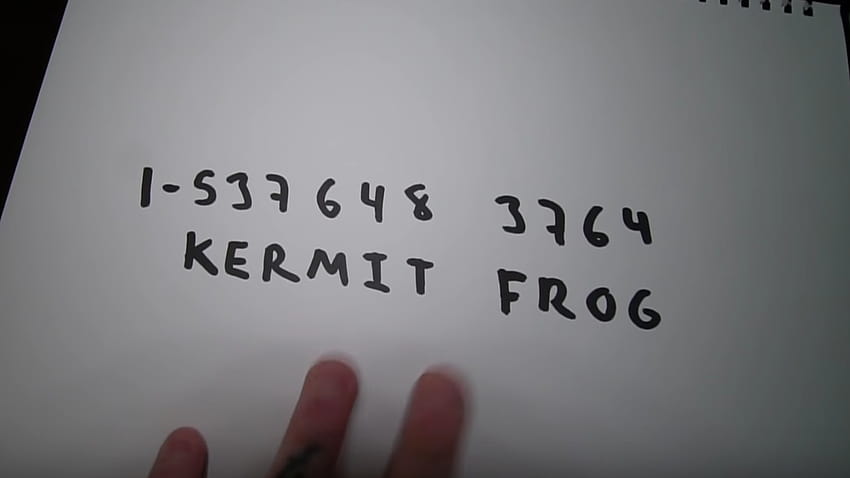 1-537648 3764
KERMIT FROG